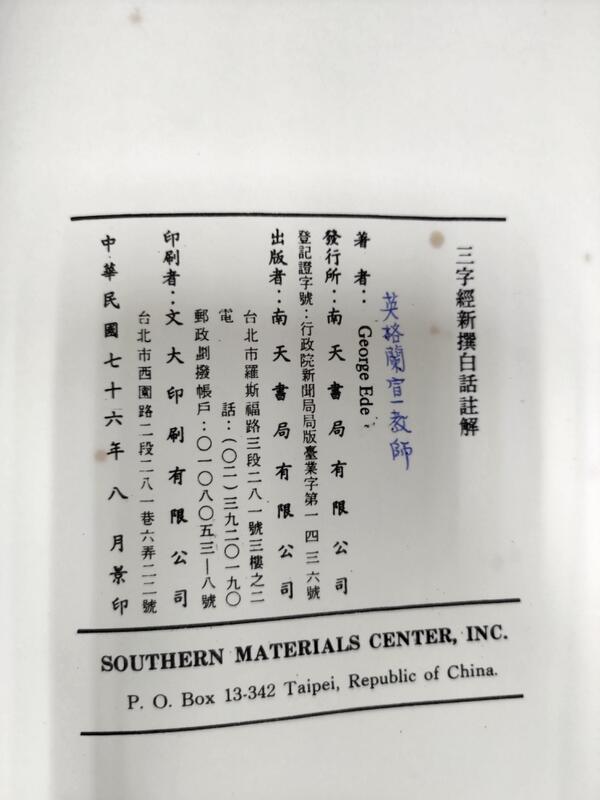 三字經新撰白話註解
英格蘭宣教師
著者：George Ede
發行所：南天書局有限公司
登記證字號：行政院新聞局局版臺業字第一四三六號
出版者：南天書局有限公司
台北市羅斯福路三段二八一號三樓之二
電話：(〇二)三九二〇一九〇
郵政劃撥帳戶：〇一〇八〇五三—八號
印刷者：文大印刷有限公司
台北市西園路二段二八一巷六弄二二號
中華民國七十六年八月景印
SOUTHERN MATERIALS CENTER, INC.
P. O. Box 13-342 Taipei, Republic of China.